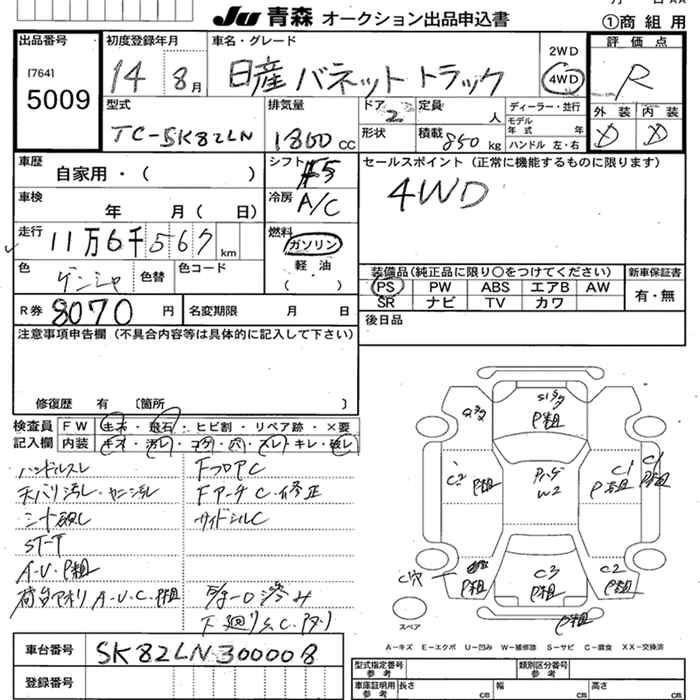 JU 青森 オークション出品申込書
①商組用
出品番号
[764]
5009
初度登録年月
14 8月
車名・グレード
日産 バネットトラック
2WD
4WD
評価点
R
外装 内装
D D
型式
TC-SK82LN
排気量
1800cc
ドア 2
形状
定員 人
積載 850kg
ディーラー・並行
モデル年式 年
ハンドル 左・右
車歴
自家用・( )
シフト F5
セールスポイント(正常に機能するものに限ります)
4WD
車検
年 月( 日)
冷房 A/C
走行
11万6千567km
燃料
ガソリン
軽油
( )
色
ゲンシャ
色替
色コード
装備品(純正品に限り○をつけてください)
PS PW ABS エアB AW
SR ナビ TV カワ
新車保証書
有・無
R券 8070円
名変期限 月 日
後日品
注意事項申告欄(不具合内容等は具体的に記入して下さい)
修復歴 有 〔箇所 〕
検査員記入欄
FW キズ・飛石・ヒビ割・リペア跡・×要
内装 キズ・汚レ・コゲ・穴・スレ・キレ・破レ
ハンドルスレ
天バリ汚レ・
シート破レ
ST-T
A・U・P粗
荷台アオリ A・U・C・P粗
FフロアC
FアーチC・修正
サイドシルC
下廻りS.C.
S1
P粗
C2 P粗
W2
C1 P粗
P粗
C穴
P粗
C3
P粗
C2
P粗
P粗
スペア
A−キズ E−エクボ U−凹み W−補修跡 S−サビ C−腐食 XX−交換済
車台番号
SK82LN300008
登録番号
型式指定番号 参考
類別区分番号 参考
車庫証明用 参考
長さ cm
幅 cm
高さ cm